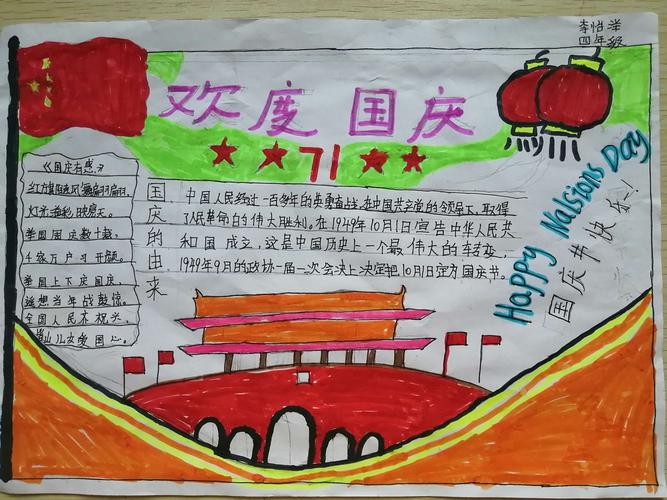 李怡
四年级
欢度 国庆
71
《国庆有感》
红旗
灯光
举国同庆数十载,
千家万户习开颜。
举国上下庆国庆,
遥想当年战鼓惊。
全国人民齐祝兴,
儿女爱国心。
国庆的由来
中国人民经过一百多年的英勇奋战,在中国共产党的领导下,取得
了人民革命的伟大胜利。在1949年10月1日宣告中华人民共
和国成立,这是中国历史上一个最伟大的转变,
1949年9月的政协一届一次会决上决定把10月1日定为国庆节。
Happy Nalsions Day
国庆节快乐!